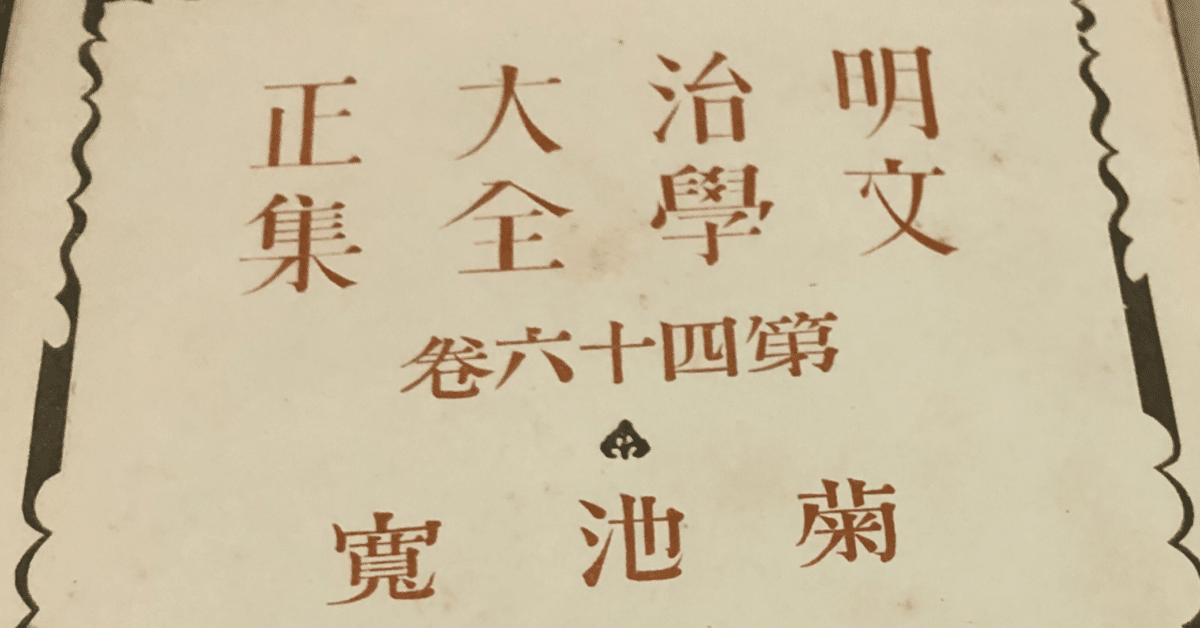 明治大正
文學全集
第四十六卷
菊池寬